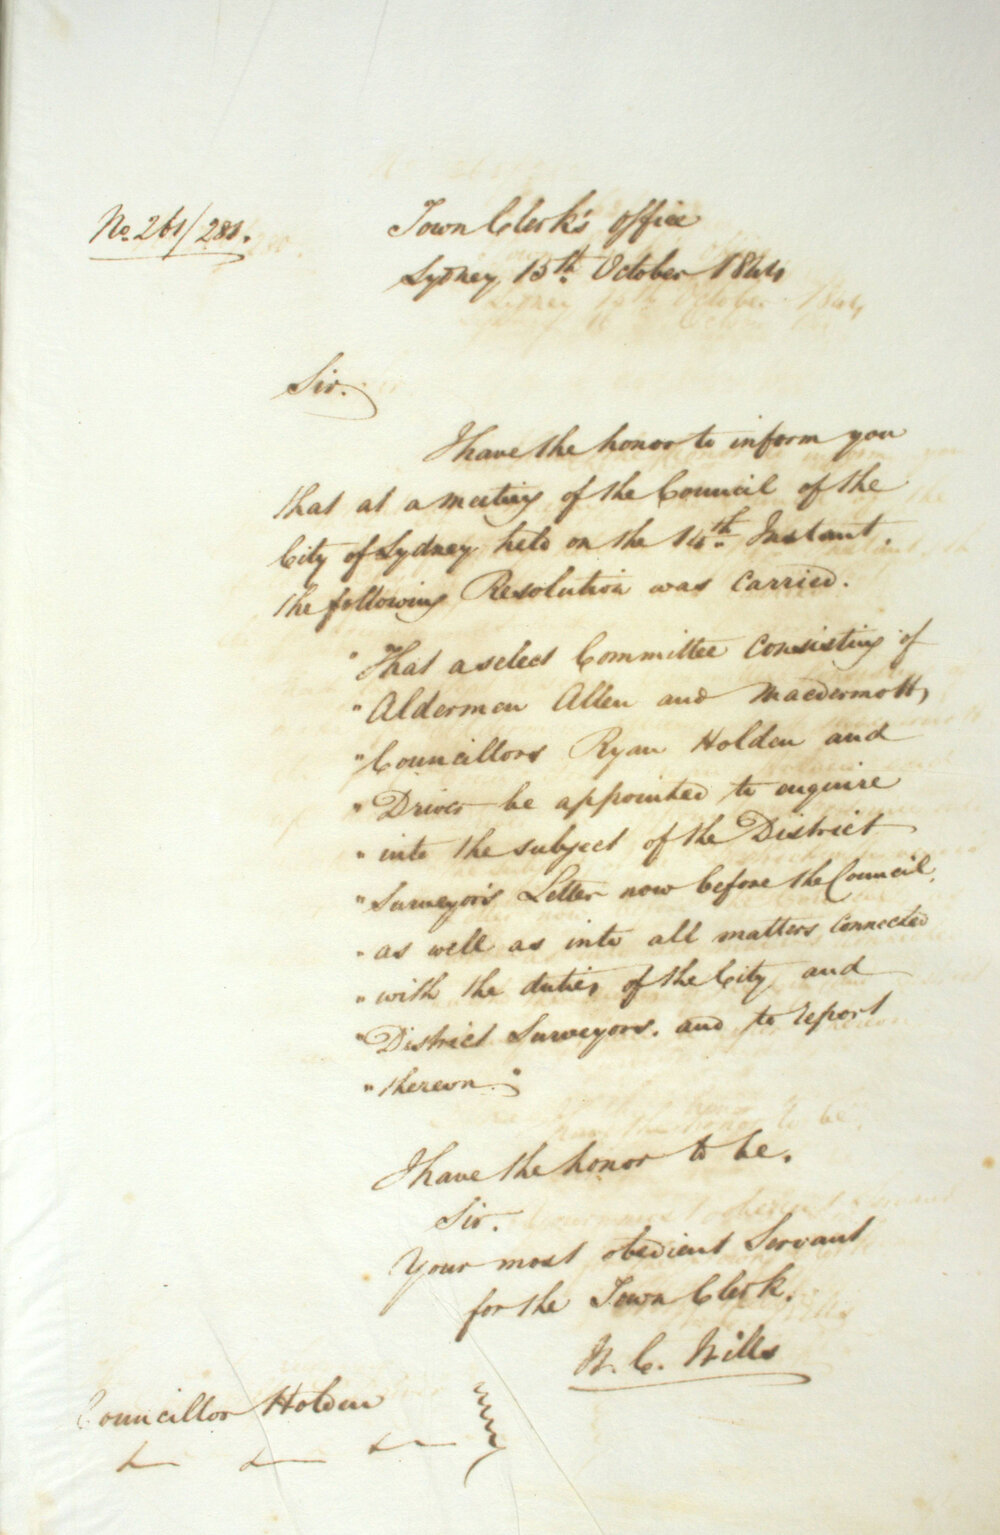 No. 261/281.
Town Clerk's Office
Sydney 15th. October 1844
Sir.
I have the honor to inform you
that at a meeting of the Council of the
City of Sydney held on the 14th. Instant.
the following Resolution was carried.
"That a select Committee consisting of
"Aldermen Allen and Macdermott,
"Councillors Ryan Holden and
"Driver be appointed to enquire
"into the subject of the District
"Surveyor's Letter now before the Council.
"as well as into all matters connected
"with the duties of the City and
"District Surveyors. and to report
"thereon."
I have the honor to be.
Sir.
Your most obedient Servant
for the Town Clerk.
W. C. Wills
Councillor Holden